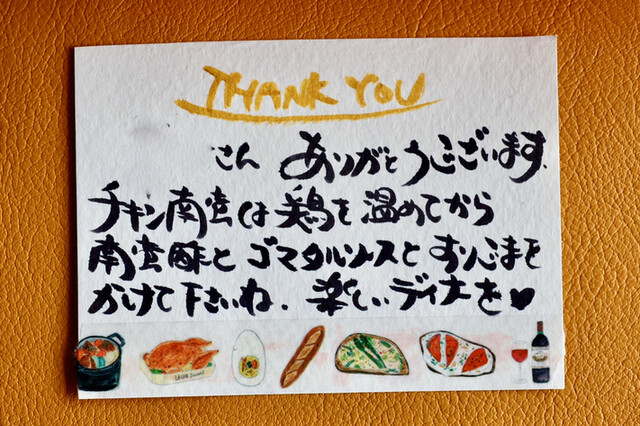 THANK YOU
さん ありがとうございます、
チキン南蛮は鶏を温めてから
南蛮酢とゴマタルソースとすりごまを
かけて下さいね。楽しいディナーを♥